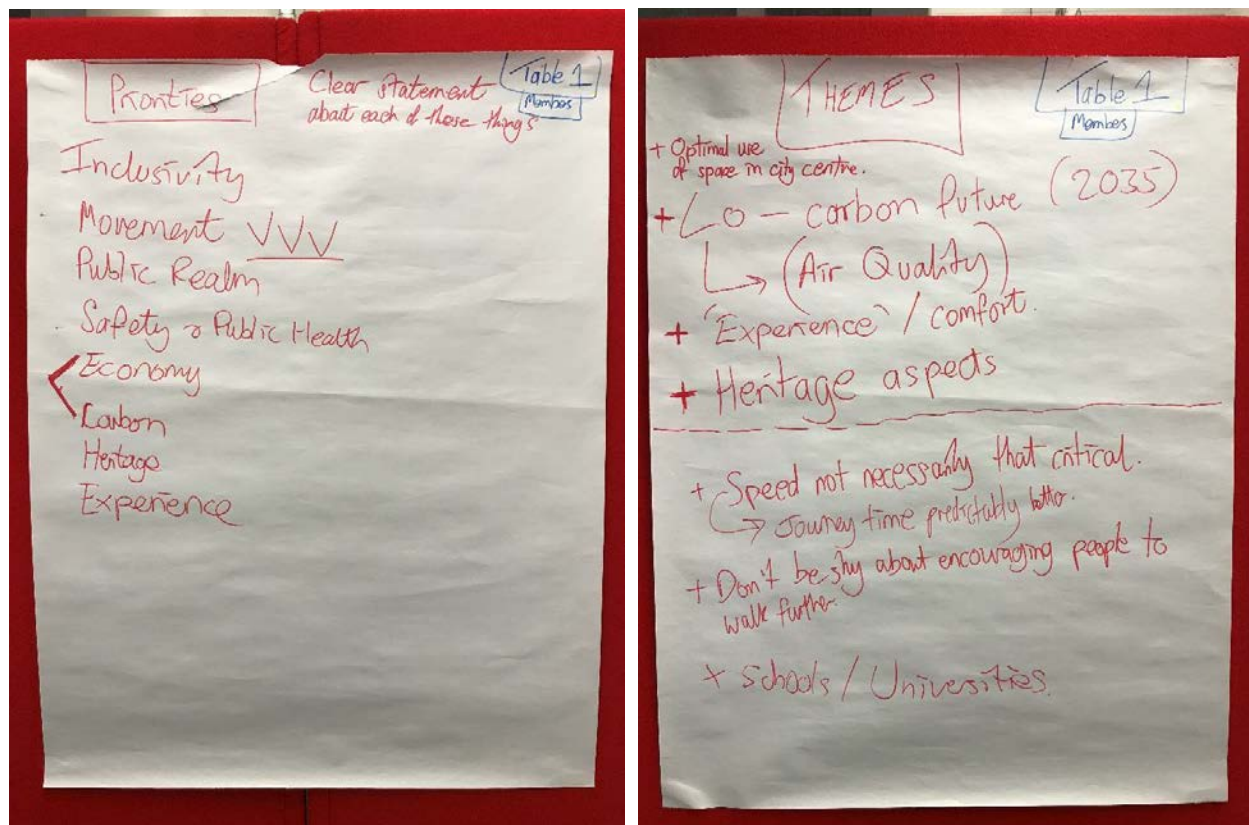 Priorities
Clear statement
about each of these things
Table 1
Members
Inclusivity
Movement
Public Realm
Safety & Public Health
Economy
Carbon
Heritage
Experience
THEMES
Table 1
Members
+ Optimal use
of space in city centre.
+ Lo - carbon future (2035)
(Air Quality)
+ "Experience" / comfort.
+ Heritage aspects
+ Speed not necessarily that critical.
Journey time predictably better.
+ Don't be shy about encouraging people to
walk further.
+ Schools / Universities.